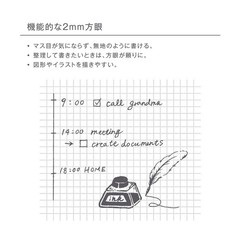 機能的な2mm方眼
• マス目が気にならず、無地のように書ける。
• 整理して書きたいときは、方眼が頼りに。
• 図形やイラストを描きやすい。
9:00 ☑ call grandma
14:00 meeting
→ □ create documents
18:00 HOME
INK